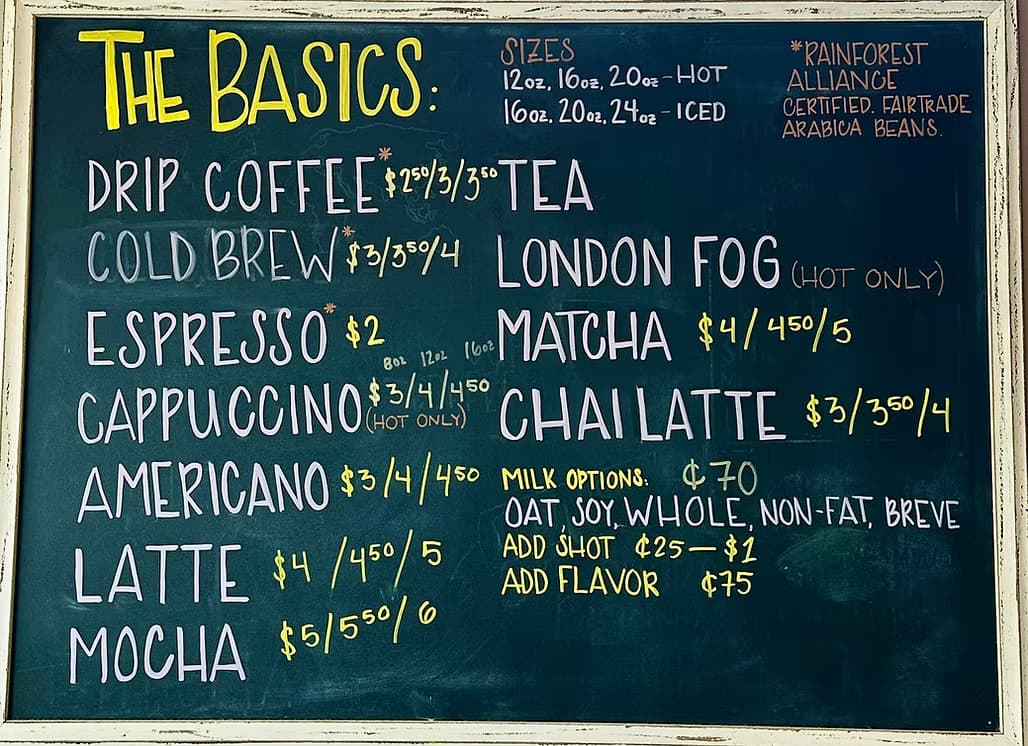 THE BASICS:
SIZES
12oz, 16oz, 20oz - HOT
16oz, 20oz, 24oz - ICED
*RAINFOREST
ALLIANCE
CERTIFIED. FAIRTRADE
ARABICA BEANS.
DRIP COFFEE* $2⁵⁰/3/3⁵⁰
COLD BREW* $3/3⁵⁰/4
ESPRESSO* $2
8oz 12oz 16oz
CAPPUCCINO $3/4/4⁵⁰
(HOT ONLY)
AMERICANO $3/4/4⁵⁰
LATTE $4/4⁵⁰/5
MOCHA $5/5⁵⁰/6
TEA
LONDON FOG (HOT ONLY)
MATCHA $4/4⁵⁰/5
CHAI LATTE $3/3⁵⁰/4
MILK OPTIONS: ¢70
OAT, SOY, WHOLE, NON-FAT, BREVE
ADD SHOT ¢25 — $1
ADD FLAVOR ¢75